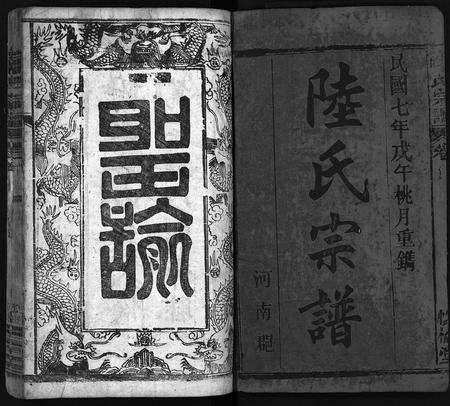 民國七年戊午桃月重鐫
陸氏宗譜
河南郡
聖諭